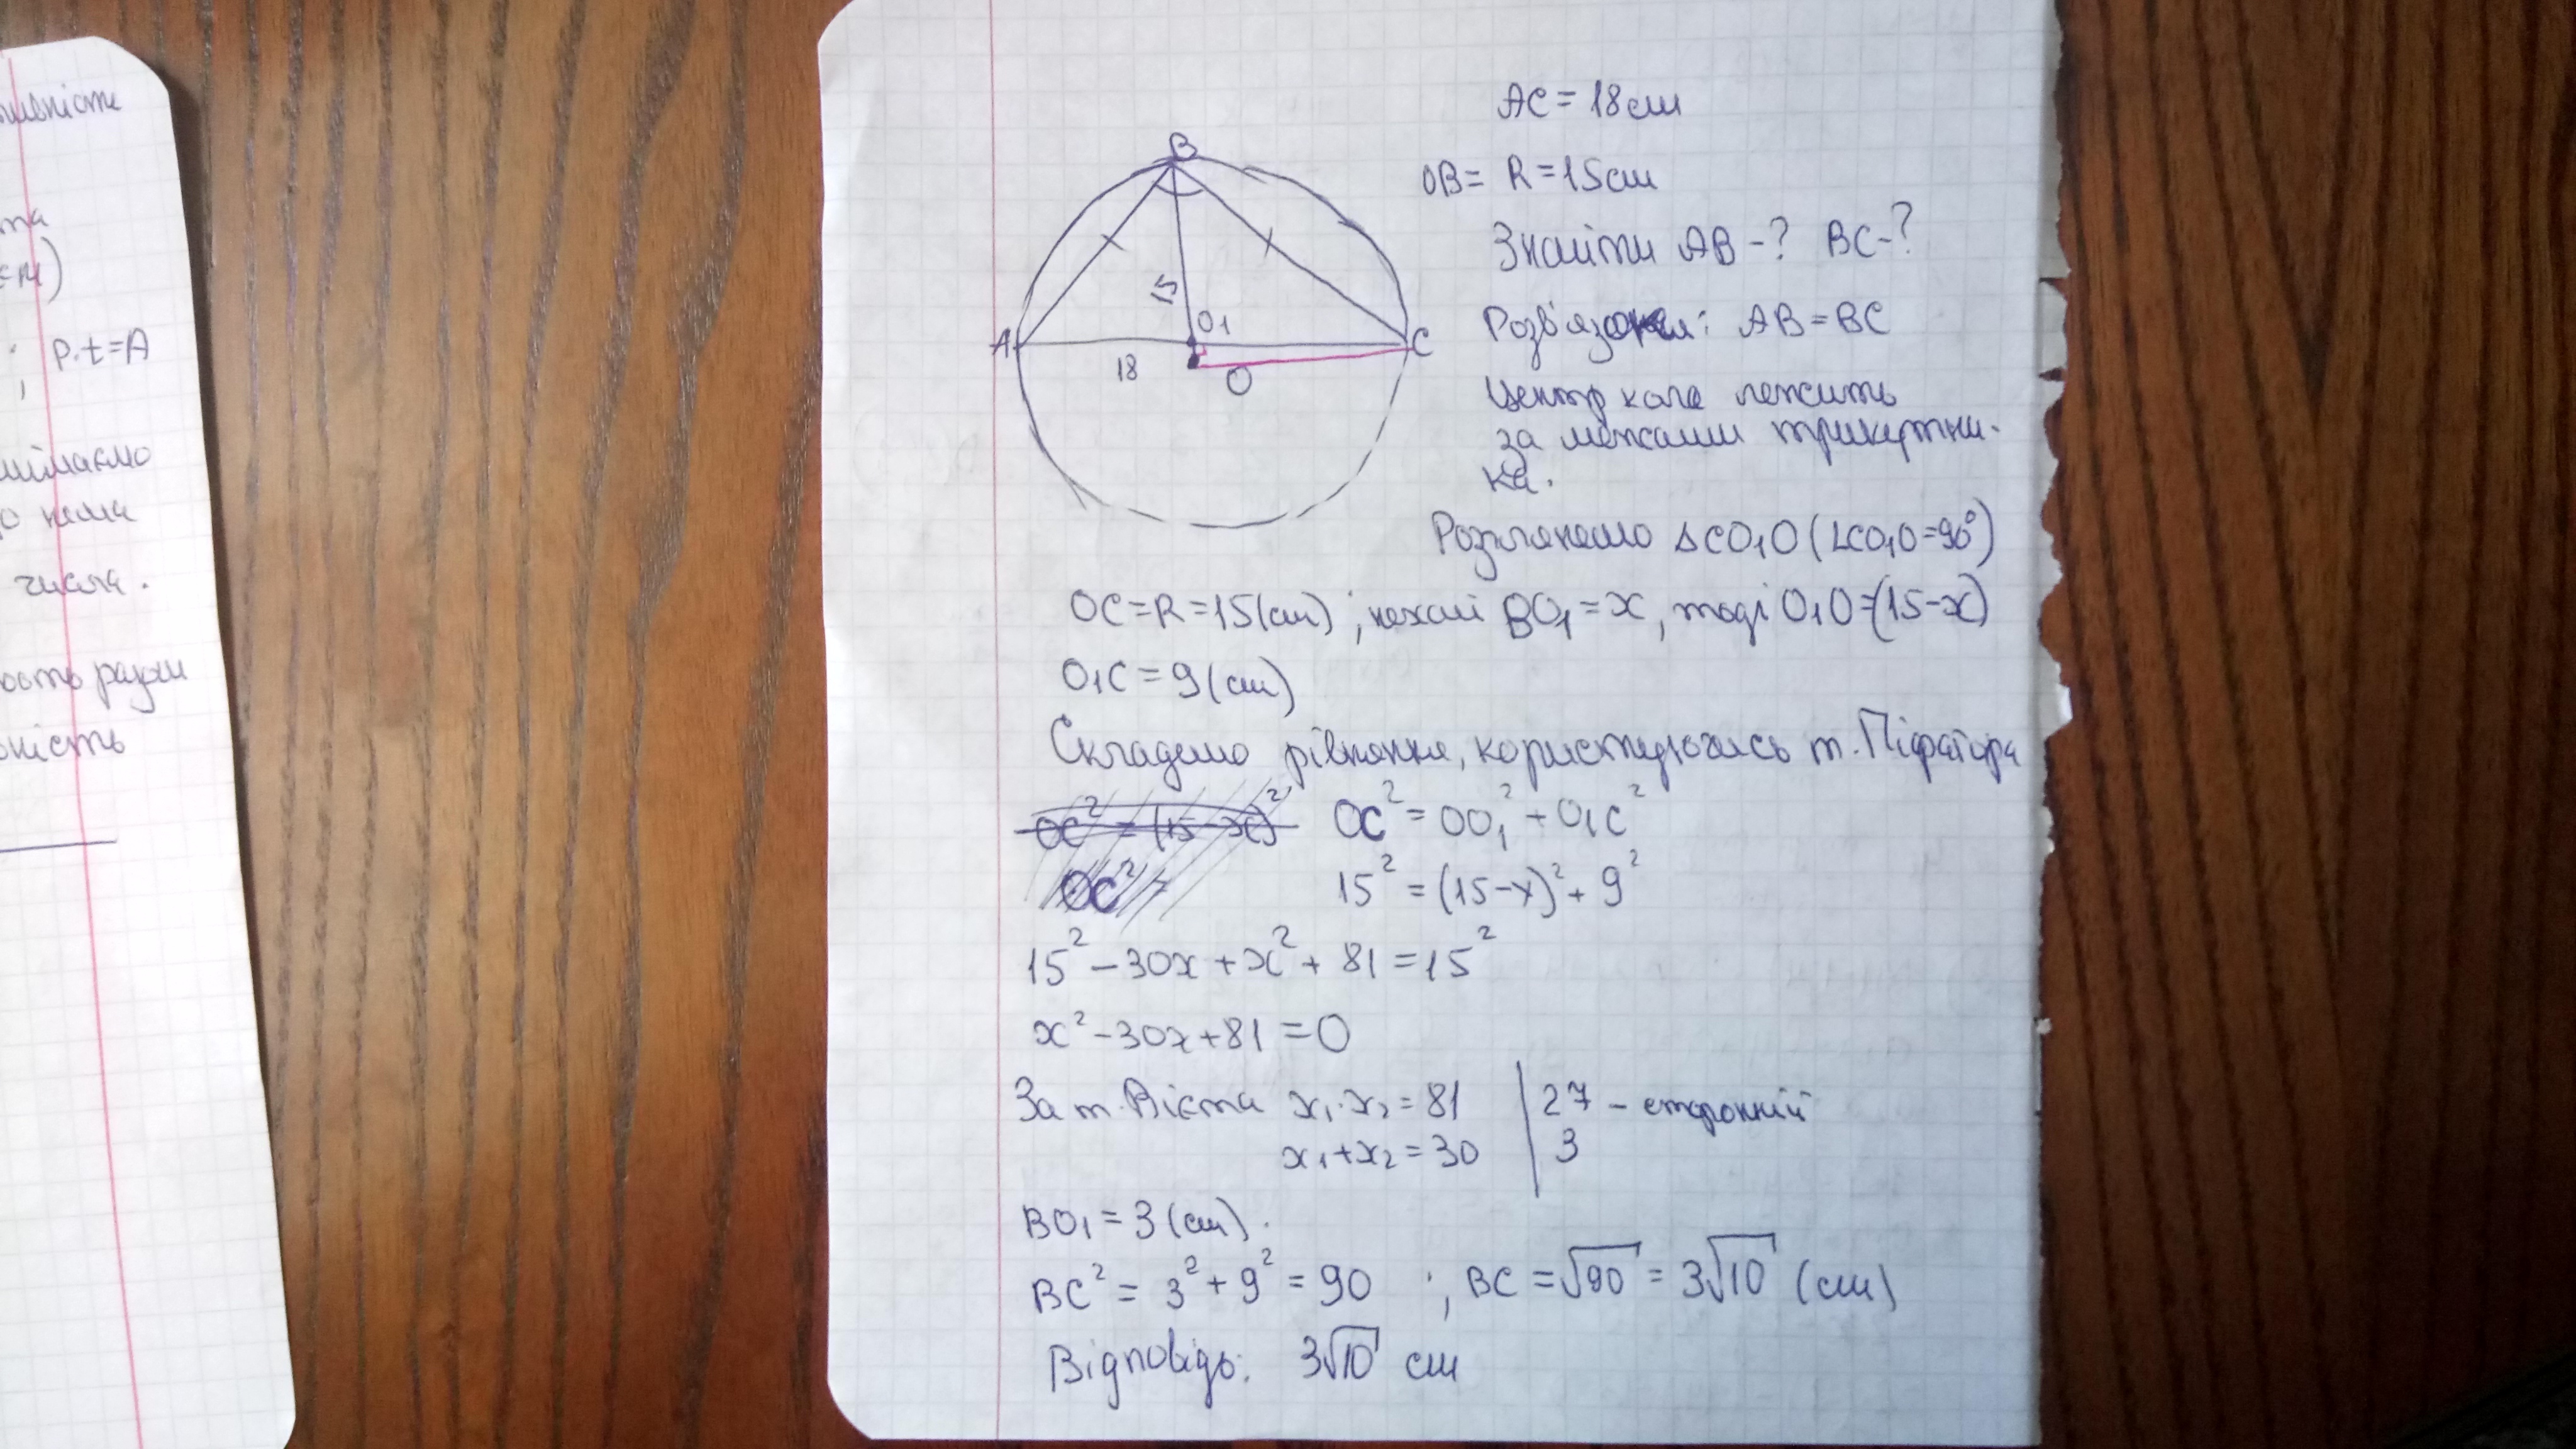 ; p·t=A
числа.
B
A
C
O₁
O
15
18
AC = 18см
OB= R=15см
Знайти AB-? BC-?
AB=BC
Центр кола лежить
за межами трикутни-
ка.
Розглянемо ΔCO₁O (∠CO₁O=90°)
OC=R=15(см); нехай BO₁=x, тоді O₁O=(15-x)
O₁C=9(см)
Складемо рівняння, користуючись т. Піфагора
OC² = OO₁² + O₁C²
15² = (15-x)² + 9²
15² - 30x + x² + 81 = 15²
x² - 30x + 81 = 0
За т. Вієта x₁·x₂ = 81 | 27 - сторонній
x₁+x₂ = 30 | 3
BO₁ = 3 (см).
BC² = 3² + 9² = 90 ; BC = √90 = 3√10 (см)
Відповідь: 3√10 см